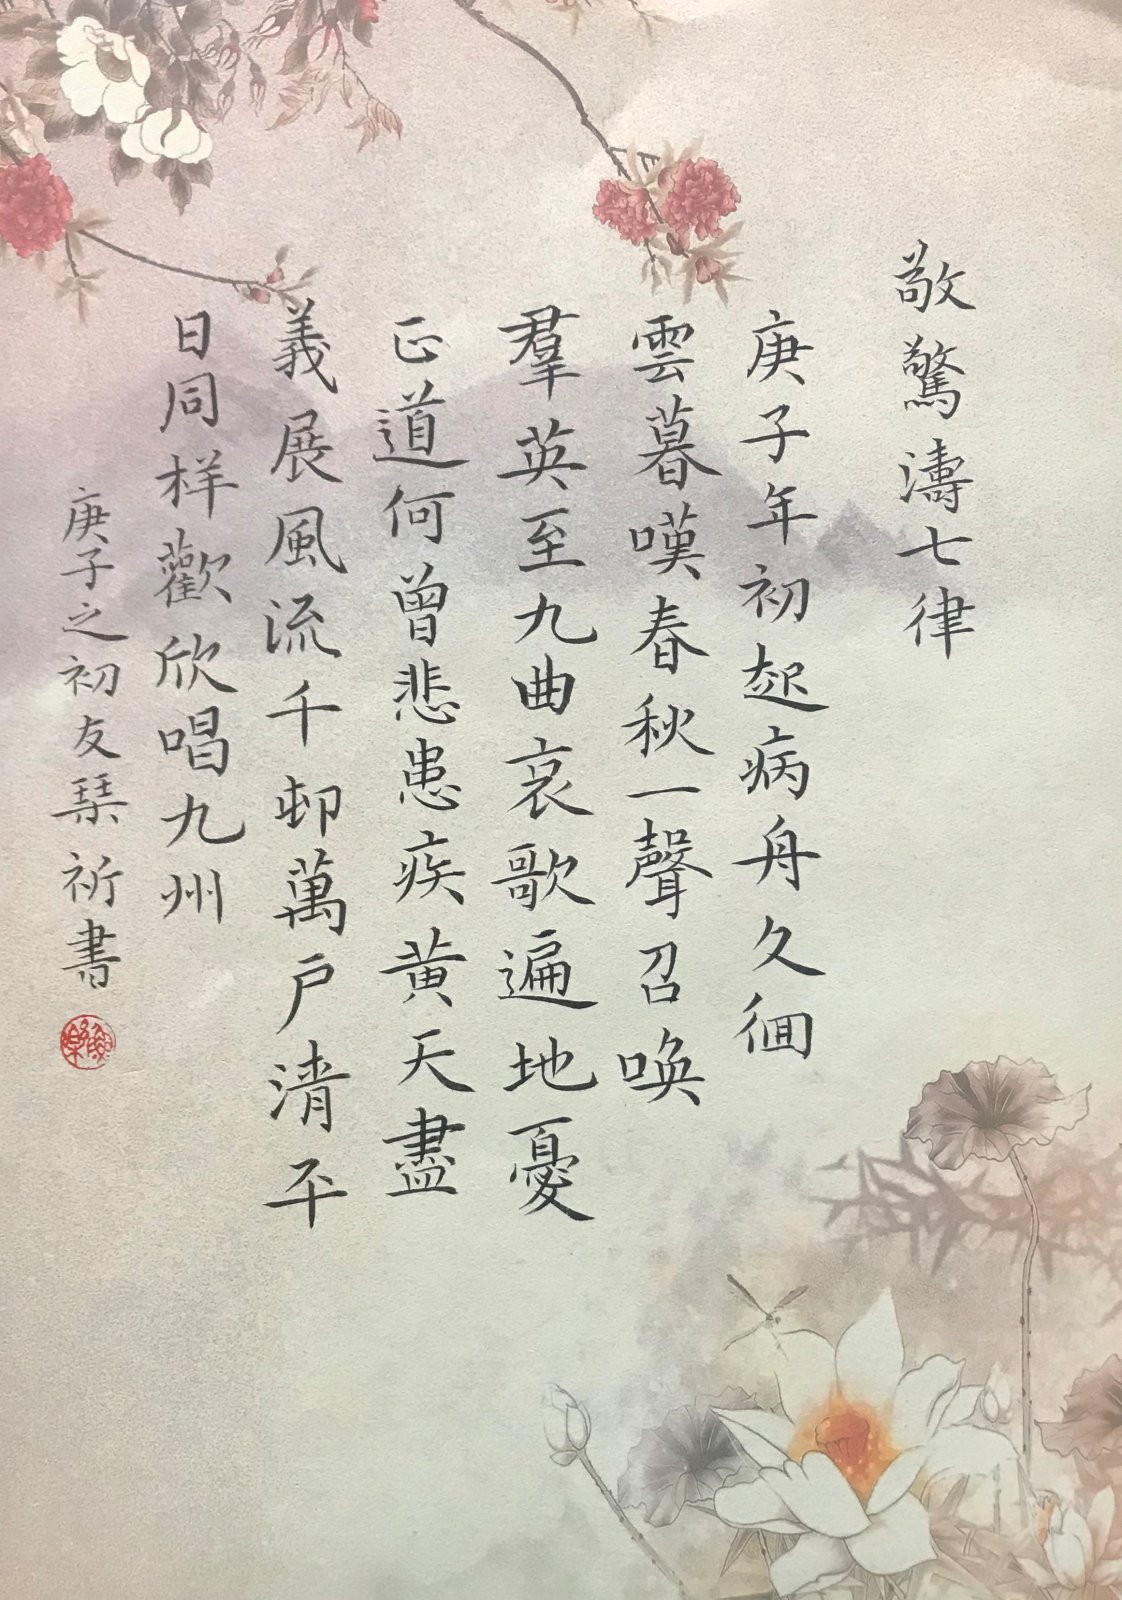 敬驚濤七律
庚子年初起病舟久徊
雲暮嘆春秋一聲召唤
羣英至九曲哀歌遍地憂
正道何曾悲患疾黄天盡
義展風流千邨萬戶清平
日同样歡欣唱九州
庚子之初友琹祈書